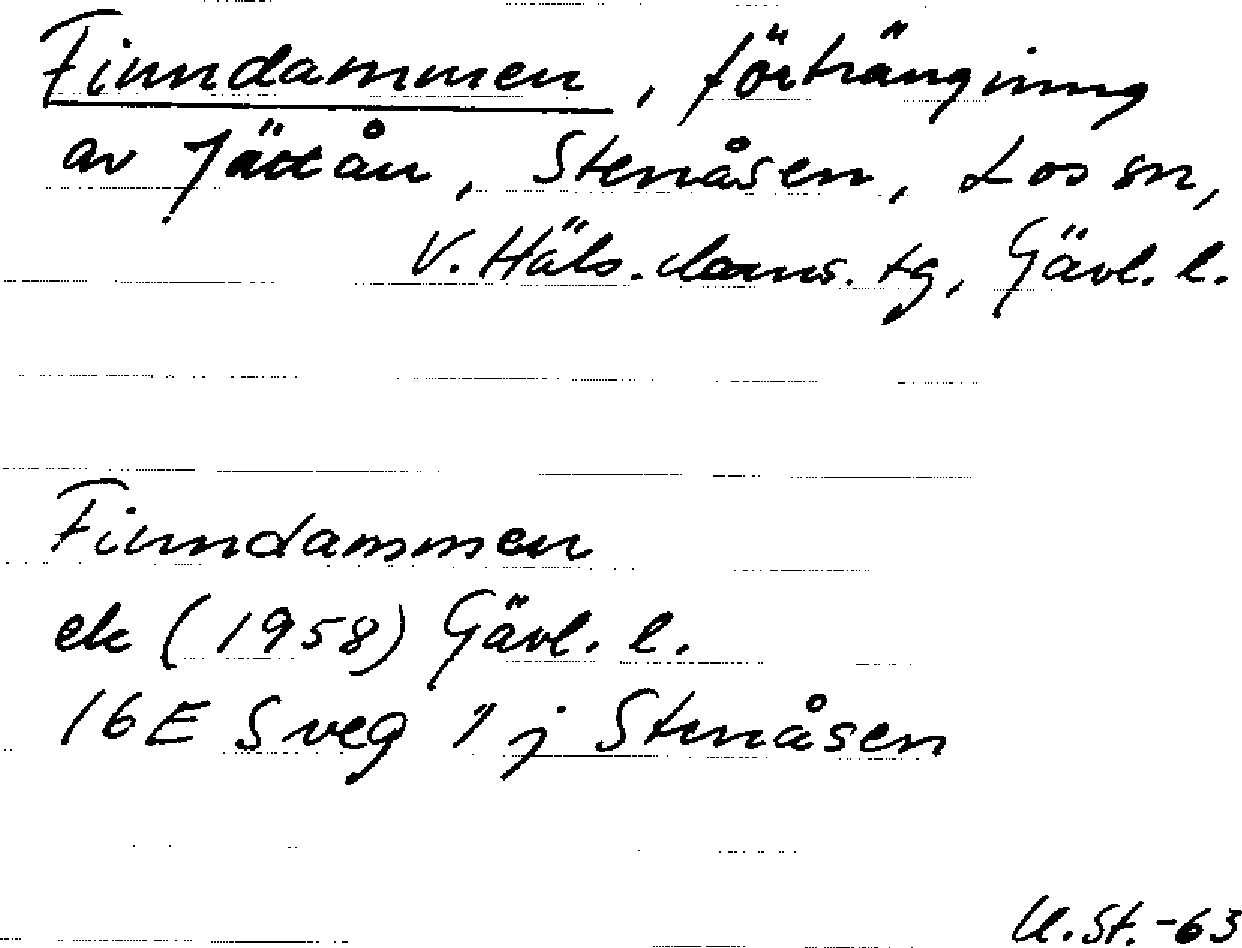 Finndammen, förträngning
av Jättån, Stenåsen, Los sn,
V. Häls. doms. tg, Gävl. l.
Finndammen
ek (1958) Gävl. l.
16E Sveg 1 j Stenåsen
U.St.-63